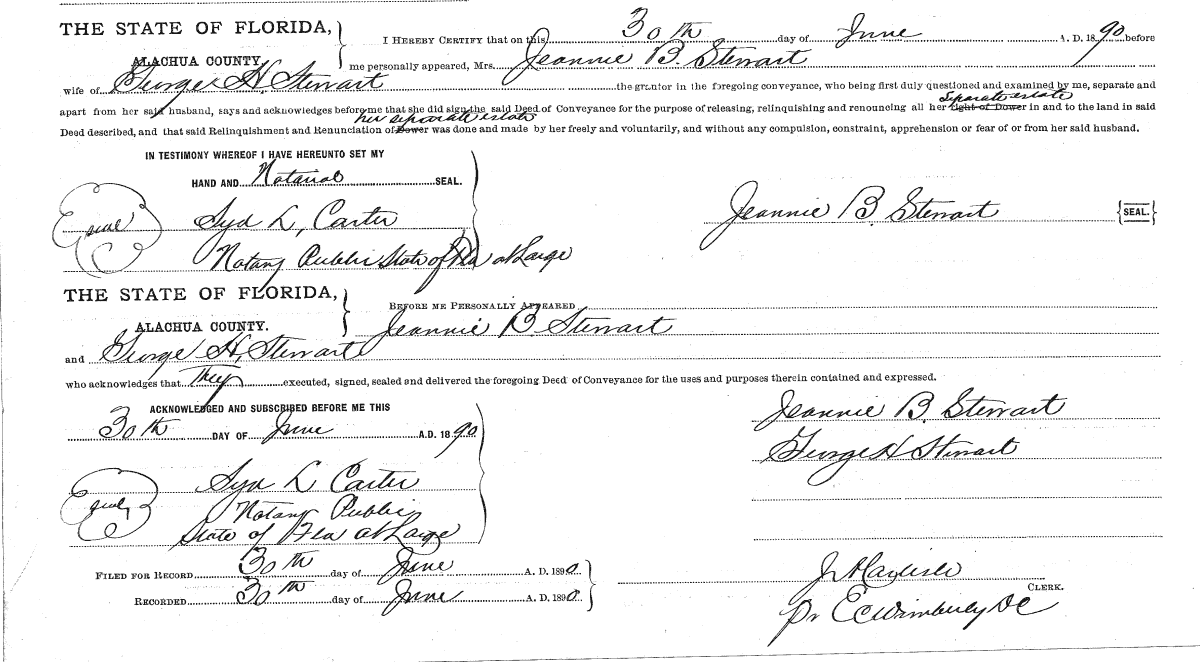 THE STATE OF FLORIDA,
ALACHUA COUNTY.
I HEREBY CERTIFY that on this 30th day of June A. D. 1890 before
me personally appeared, Mrs. Jeannie B. Stewart
wife of George H. Stewart the grantor in the foregoing conveyance, who being first duly questioned and examined by me, separate and
separate estate
apart from her said husband, says and acknowledges before me that she did sign the said Deed of Conveyance for the purpose of releasing, relinquishing and renouncing all her right of Dower in and to the land in said
her separate estate
Deed described, and that said Relinquishment and Renunciation of Dower was done and made by her freely and voluntarily, and without any compulsion, constraint, apprehension or fear of or from her said husband.
IN TESTIMONY WHEREOF I HAVE HEREUNTO SET MY
HAND AND Notarial SEAL.
seal
Syd L, Carter
Notary Public State of Fla at Large
Jeannie B Stewart {SEAL.}
THE STATE OF FLORIDA,
ALACHUA COUNTY.
BEFORE ME PERSONALLY APPEARED
Jeannie B. Stewart
and George H, Stewart
who acknowledges that They executed, signed, sealed and delivered the foregoing Deed of Conveyance for the uses and purposes therein contained and expressed.
ACKNOWLEDGED AND SUBSCRIBED BEFORE ME THIS
30th DAY OF June A.D. 1890
seal
Syd L Carter
Notary Public
State of Fla at Large
Jeannie B. Stewart
George H Stewart
FILED FOR RECORD 30th day of June A. D. 1890
RECORDED 30th day of June A. D. 1890
CLERK.
Pr E C Wimberly DC